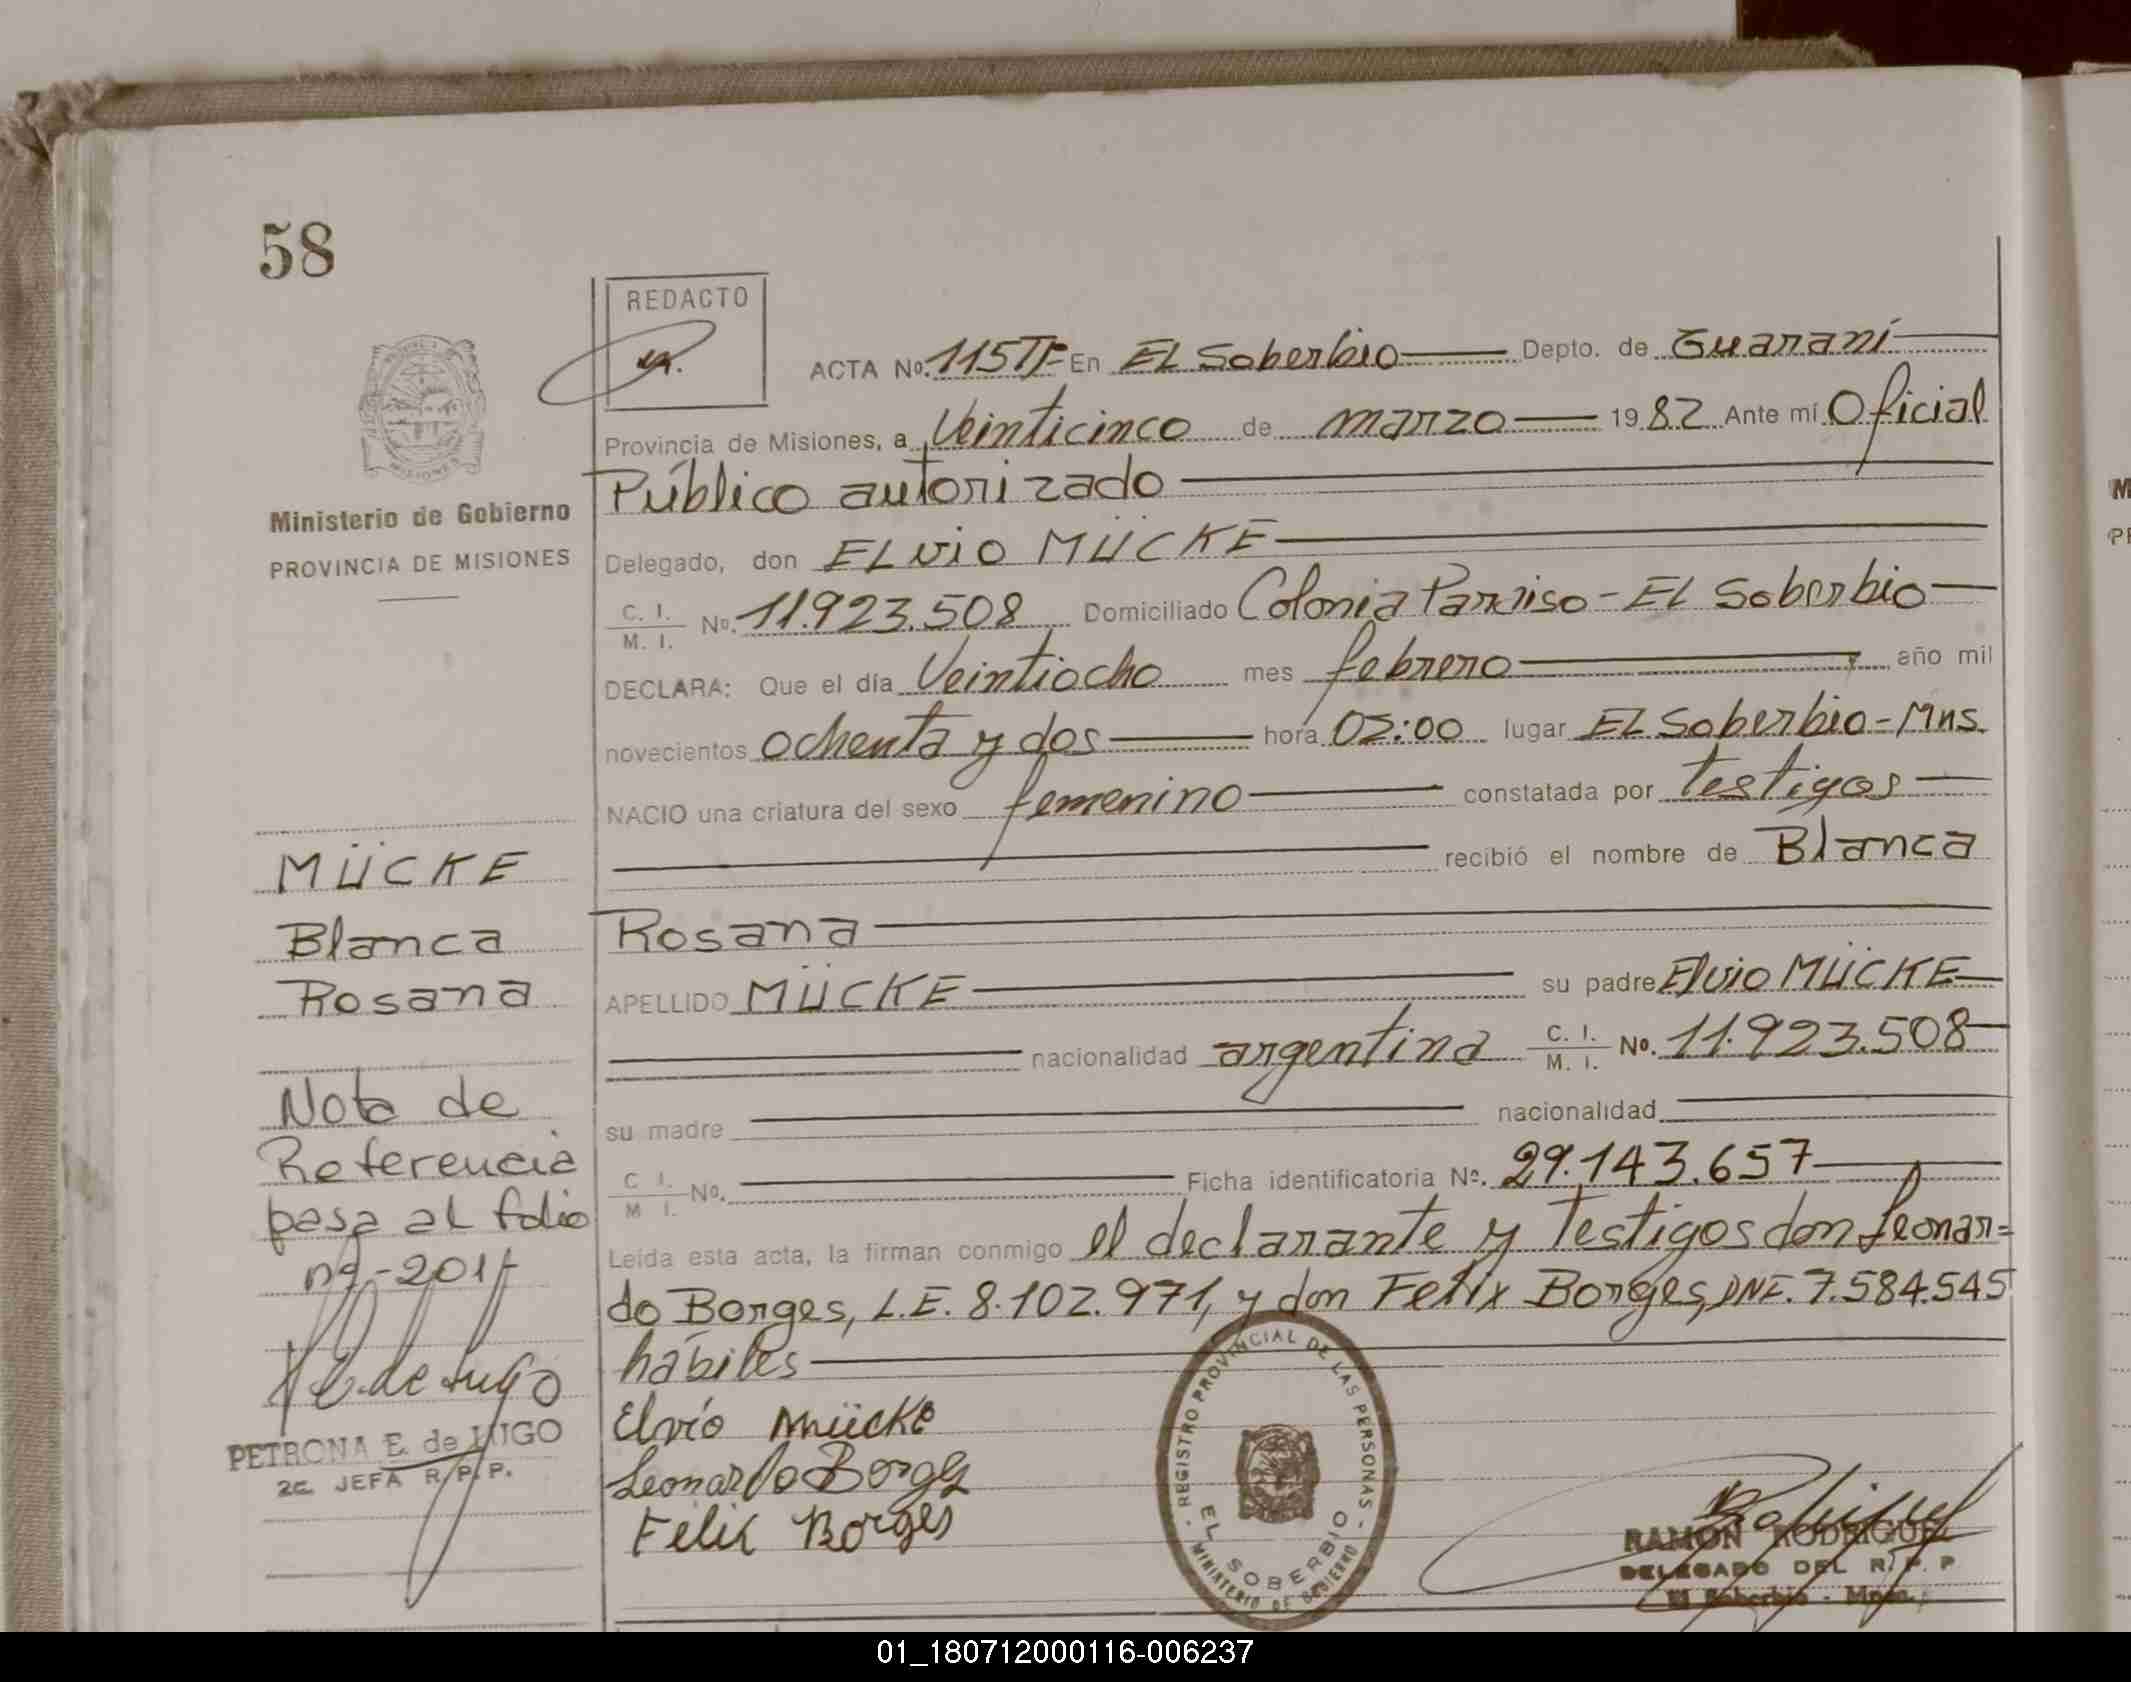 58
REDACTO
ACTA No. 115TF En EL Soberbio Depto. de Guaraní
Provincia de Misiones, a Veinticinco de marzo 1982 Ante mí Oficial
Público autorizado
Ministerio de Gobierno
PROVINCIA DE MISIONES
Delegado, don ELVIO MÜCKE
C. I. / M. I. No. 11.923.508 Domiciliado Colonia Paraiso - EL Soberbio
DECLARA: Que el día Veintiocho mes febrero año mil
novecientos ochenta y dos hora 02:00 lugar EL Soberbio - Mns.
NACIO una criatura del sexo femenino constatada por testigos
recibió el nombre de Blanca
Rosana
APELLIDO MÜCKE su padre Elvio MÜCKE
nacionalidad argentina C. I. / M. I. No. 11.923.508
su madre nacionalidad
C I. / M I. No. Ficha identificatoria No. 29.143.657
Leída esta acta, la firman conmigo el declarante y Testigos don Leonar=
do Borges, L.E. 8.102.971, y don Felix Borges, DNI. 7.584.545
hábiles
Elvio Mücke
Leonardo Borges
Felix Borges
MÜCKE
Blanca
Rosana
Nota de
Referencia
pasa al folio
nº - 201
E. de Lugo
PETRONA E. de LUGO
2a JEFA R.P.P.
REGISTRO PROVINCIAL DE LAS PERSONAS
EL SOBERBIO
MINISTERIO DE GOBIERNO
RAMON RODRIGUEZ
DELEGADO DEL R. P. P
El Soberbio - Mnes.
01_180712000116-006237